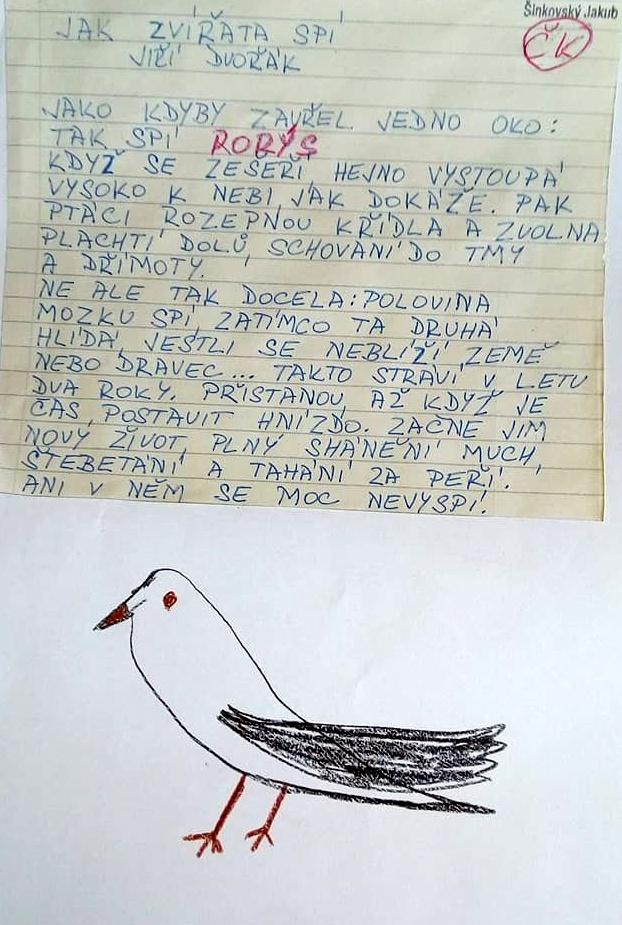 Šinkovský Jakub
ČK
JAK ZVÍŘATA SPÍ
JIŘÍ DVOŘÁK
JAKO KDYBY ZAVŘEL JEDNO OKO:
TAK SPÍ RORÝS
KDYŽ SE ZEŠEŘÍ, HEJNO VYSTOUPÁ
VYSOKO K NEBI, JAK DOKÁŽE. PAK
PTÁCI ROZEPNOU KŘÍDLA A ZVOLNA
PLACHTÍ DOLŮ, SCHOVÁNI DO TMY
A DŘÍMOTY.
NE ALE TAK DOCELA: POLOVINA
MOZKU SPÍ, ZATÍMCO TA DRUHÁ
HLÍDÁ, JESTLI SE NEBLÍŽÍ ZEMĚ
NEBO DRAVEC... TAKTO STRÁVÍ V LETU
DVA ROKY. PŘISTANOU, AŽ KDYŽ JE
ČAS POSTAVIT HNÍZDO. ZAČNE JIM
NOVÝ ŽIVOT, PLNÝ SHÁNĚNÍ MUCH,
ŠTEBETÁNÍ A TAHÁNÍ ZA PEŘÍ.
ANI V NĚM SE MOC NEVYSPÍ.